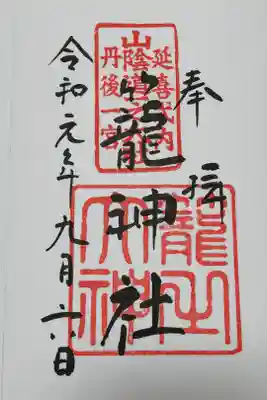 奉拝
延喜式内
山陰道
丹後一宮
籠神社
籠之
大神
令和元年九月六日